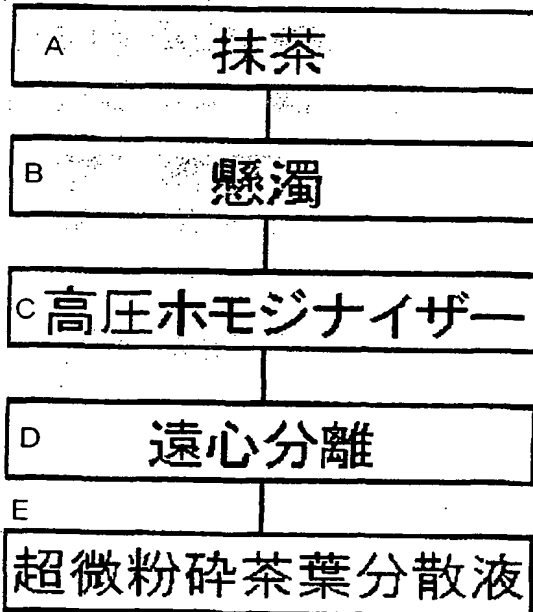 A 抹茶
B 懸濁
C 高圧ホモジナイザー
D 遠心分離
E
超微粉砕茶葉分散液